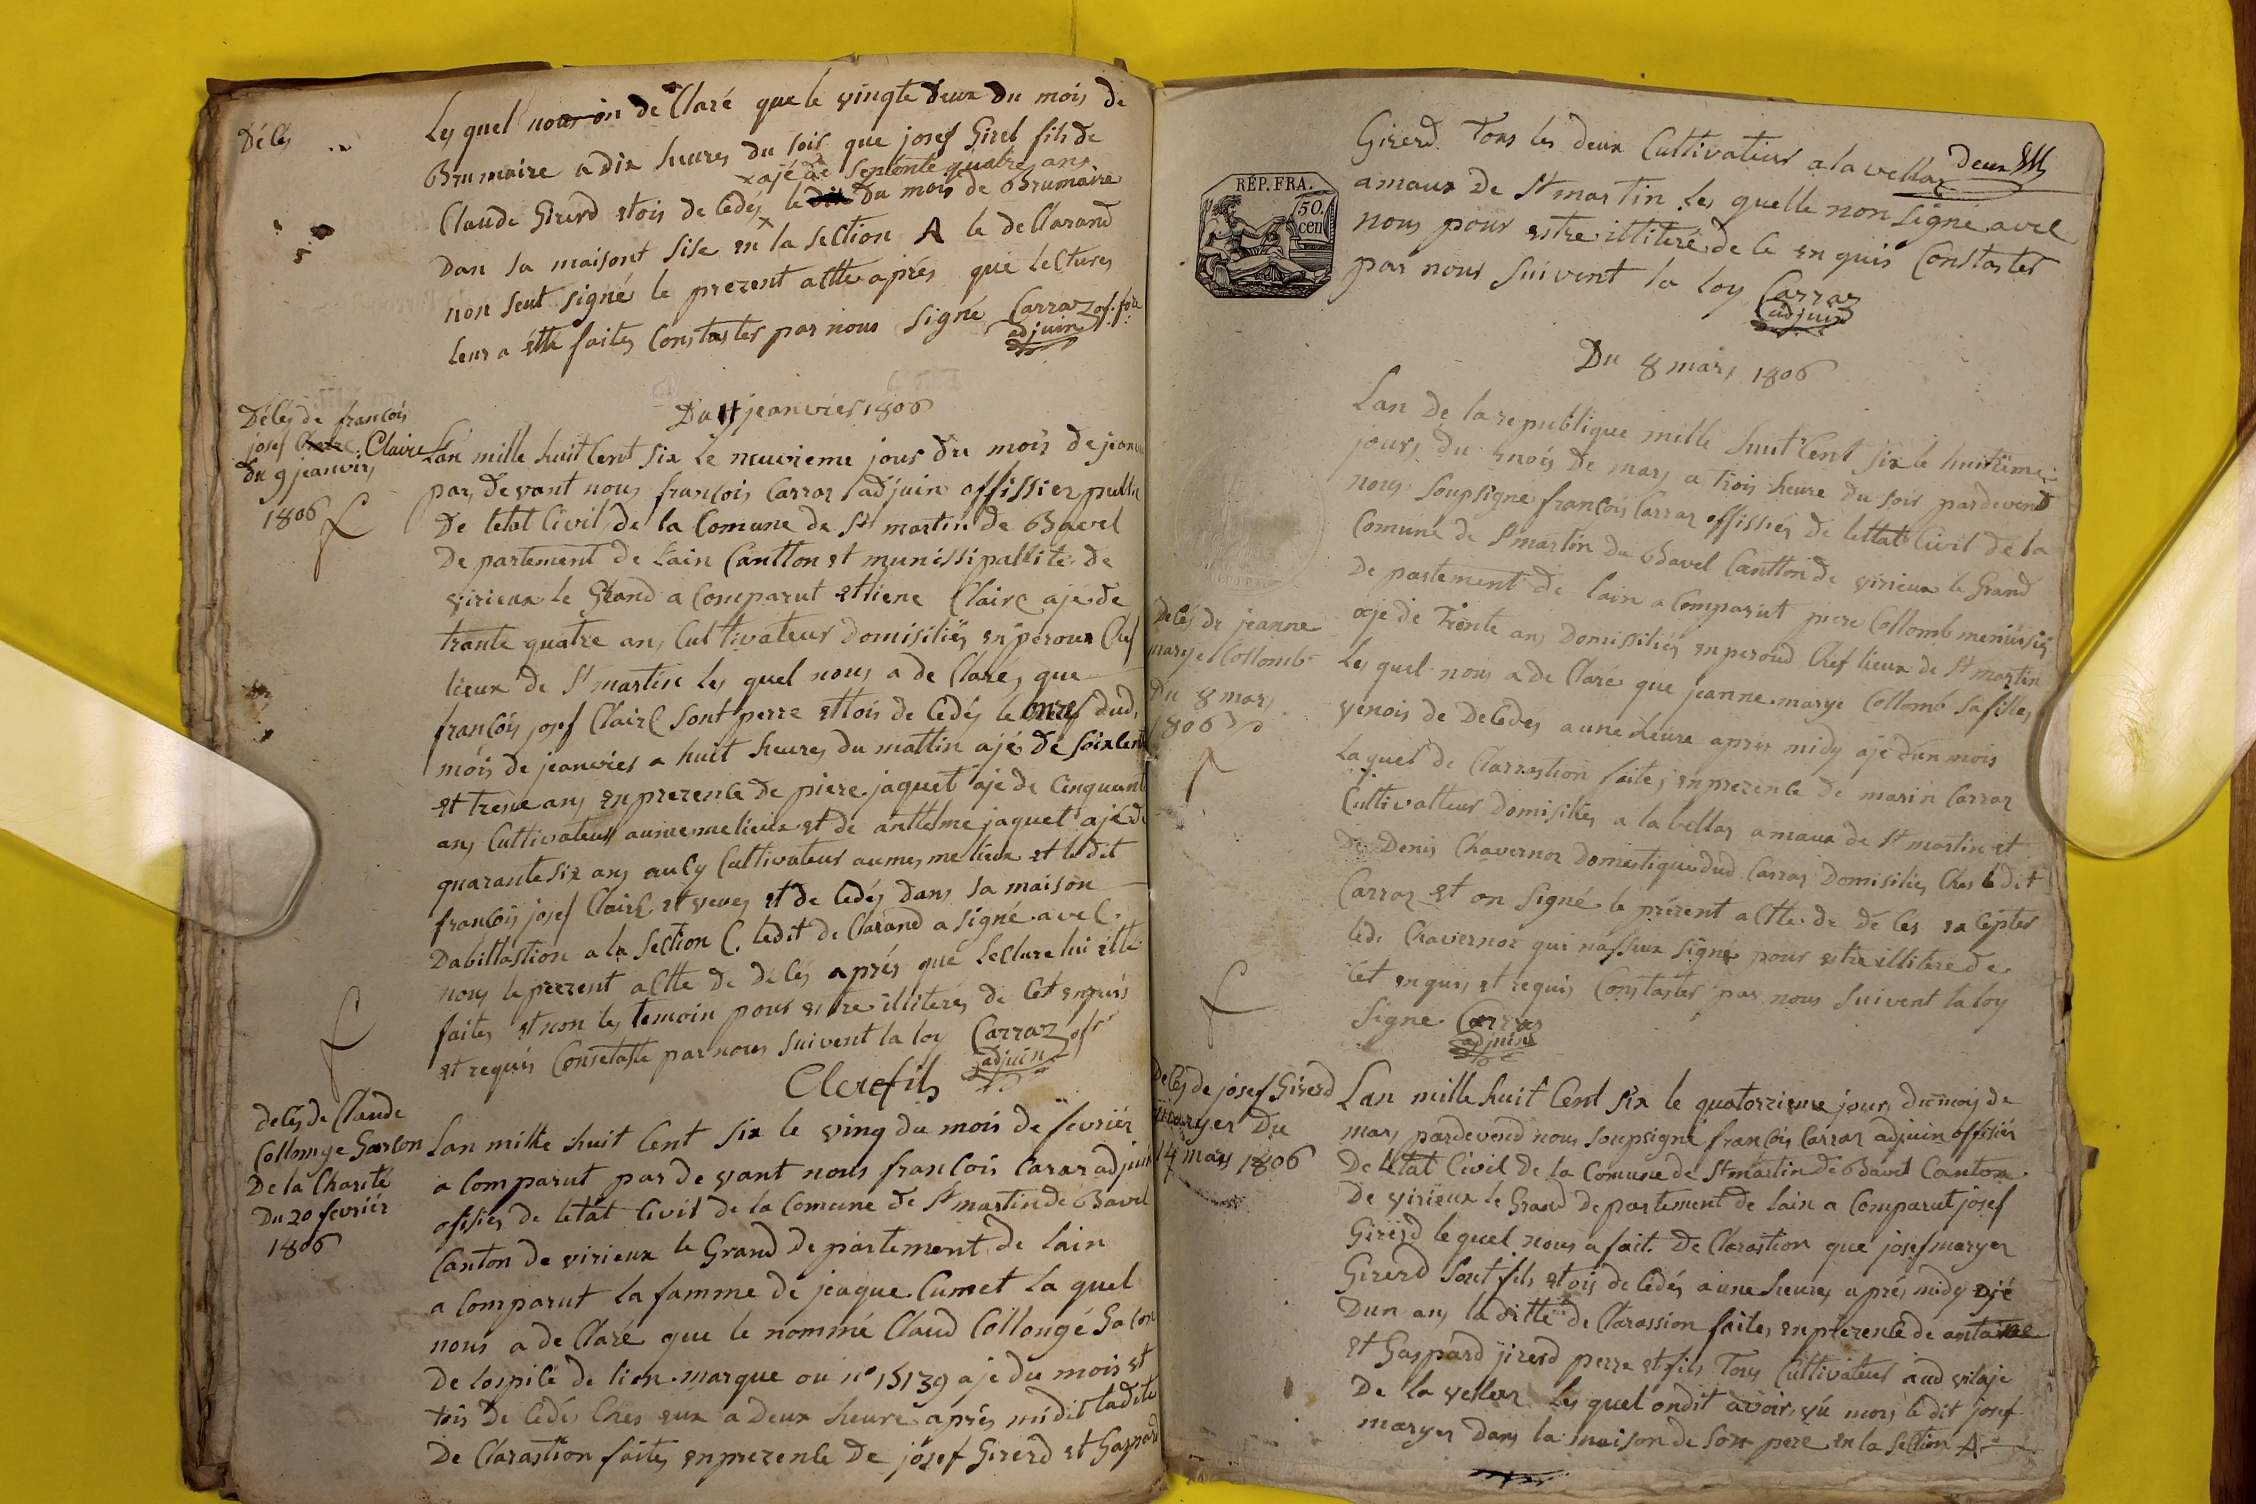 Décés
Les quel nous on de Claré que le vingte deux du mois de
Brumaire a dix heures du soir que josef Girel fils de
x ajé de septente quatre ans
Claude Girerd etois de cedéz le du mois de Brumaire
Dan sa maisont sise en la section A le declarand
non seut signé le prezent actte aprés que lectures
leur a étte faites Constaster par nous signé Carraz of. for
adjuin
Du 11 jeanvier 1806
Décés de francois
josef Claire
du 9 jeanvir
1806
Lan mille huit Cent six le neuvieme jour du mois de jeanv
par, devant nous françois Carraz adjuin offissier publi
De letat Civil, de la Comune de St martin de Bavel
De partement de Lain Cantton et munissipallité de
virieux le Grand a comparut ettiene Claire aje de
trante quatre ans Cultivateur Domisiliés en peroux Chef
lieux de St martin les quel nous a de Clarés que
françois josef Claire sont perre ettois de cedés le onze dud,
mois de jeanvier a huit heures du mattin ajé de soixente
et treize ans en prezence de piere jaquet aje de cinquant
ans Cultivateur aumemelieux et de anttelme jaquet ajé de
quarante six ans aucy Cultivateur aumesmelieux et ledit
françois josef Claire et veves et de cedés dans sa maison
Dabittastion a la section C. ledit de Clarand a signé avec
nous le prezent actte de décés aprés que lecture lui etté
faites et non les temoin pour estre illiterés de cet enquis
et requis Consetaste par nous suivent la loy Carraz ofr
adjuin
Clerefils
decés de Claude
Collonge Garcon
De la Charité
Du 20 fevriér
1806
Lan mille huit Cent six le ving du mois de fevriér
a Comparut par de vant nous francois Carraz adjuin
ofisier de letat Civil de la Comune de St martin de Bavel
Canton de virieux le Grand departement de lain
a Comparut la famme de jeaque Cumet la quel
nous a de Claré que le nommé Claud Collongé Gacon
De lospice de lion marque ou no 15139 aje du mois et
tois De cedé Ches eux a Deux heure aprés midit ladite
De Clarastion faites enprezence De josef Girerd et Gaspard
deux
Girerd. Tous les deux Cultivateur a la vellaz
amaux de St martin les quelle non signé avec
nous pour estre illiteré de ce enquis Constaster
par nous suivent la loy Carraz
adjuin
RÉP. FRA.
50.
cen
Du 8 mars 1806
Lan De la republique mille huit Cent six le huitiéme
jours du mois de mars a trois heure du soir pardevend
nous soupsigné françois Carraz offissier de lettat Civil de la
Comune de St martin du Bavel Cantton de virieux le Grand
De partement de lain a Comparut piere Collomb menuissié
aje de Trente ans Domissiliés en peroud Chef lieux de St martin
Les quel nous a de Claré que jeanne marye Collomb sa filles
venois de Decedés a une heure aprés midy aje dun mois
Laquel de Clarrastion faites enprezence de marin Carraz
Cultivatteur Domisiliés a la vellaz amaux de St martin et
De Denis Chavernoz Domestique dud. Carraz Domisiliés Ches ledit
Carraz et on signé le prézent actte de déces excepter
ledi Chavernoz qui na seux signé pour estre illiteré de
cet enquis et requis Constaster par nous suivent la loy
signe Carraz
adjuin
Decés de jeanne
marye Collomb
Du 8 mars
1806
Decés de josef Girerd
maryer Du
14 mars 1806
Lan mille huit Cent six le quatorzieme jours du mois de
mars pardevend nous soupsigné françois Carraz adjuin offisiér
De letat Civil de la Comune de St martin de Bavel Canton
De virieux le Grand Departement de lain a Comparut josef
Girerd lequel nous a fait De Clarastion que josef maryer
Girerd sont fils etois de Cedés a une heures aprés midy ajé
Dun ans, la ditte de Clarassion faites, en prezence de antoine
et Gaspard jirerd perre et fils Tous Cultivateur aud vilaje
De la vellaz les quel ondit avoir vû mors le dit josef
maryer Dans la maison de son pere en la section A